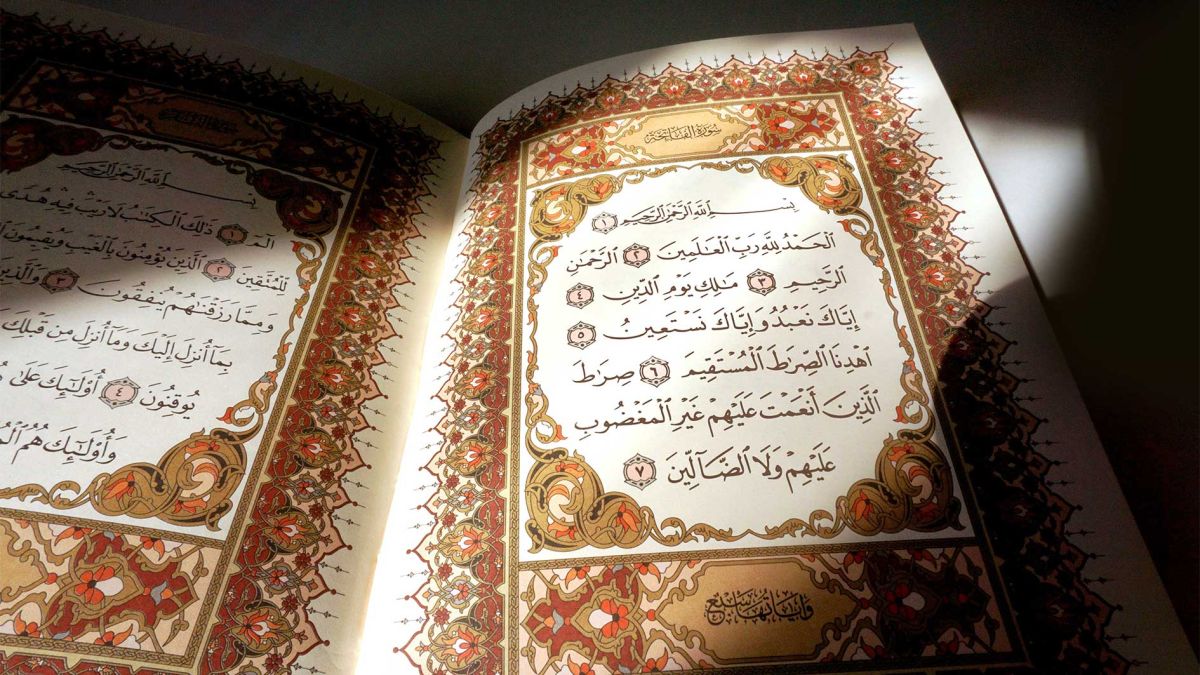 سُورَةُ الفَاتِحَةِ
بِسْمِ ٱللَّهِ ٱلرَّحْمَٰنِ ٱلرَّحِيمِ ١
ٱلْحَمْدُ لِلَّهِ رَبِّ ٱلْعَٰلَمِينَ ٢ ٱلرَّحْمَٰنِ
ٱلرَّحِيمِ ٣ مَٰلِكِ يَوْمِ ٱلدِّينِ ٤
إِيَّاكَ نَعْبُدُ وَإِيَّاكَ نَسْتَعِينُ ٥
ٱهْدِنَا ٱلصِّرَٰطَ ٱلْمُسْتَقِيمَ ٦ صِرَٰطَ
ٱلَّذِينَ أَنْعَمْتَ عَلَيْهِمْ غَيْرِ ٱلْمَغْضُوبِ
عَلَيْهِمْ وَلَا ٱلضَّآلِّينَ ٧
وَآيَاتُهَا سَبْعٌ
بِسْمِ ٱللَّهِ ٱلرَّحْمَٰنِ ٱلرَّحِيمِ
الٓمٓ ١ ذَٰلِكَ ٱلْكِتَٰبُ لَا رَيْبَ فِيهِ هُدًى
لِّلْمُتَّقِينَ ٢ ٱلَّذِينَ يُؤْمِنُونَ بِٱلْغَيْبِ وَيُقِيمُونَ
وَمِمَّا رَزَقْنَٰهُمْ يُنفِقُونَ ٣ وَٱلَّذِينَ
بِمَآ أُنزِلَ إِلَيْكَ وَمَآ أُنزِلَ مِن قَبْلِكَ
يُوقِنُونَ ٤ أُو۟لَٰٓئِكَ عَلَىٰ
وَأُو۟لَٰٓئِكَ هُمُ